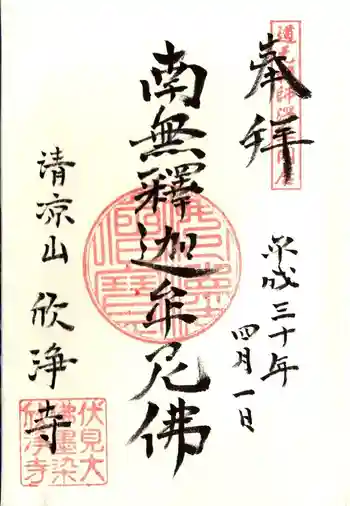 奉拝
平成三十年
四月一日
南無釋迦牟尼佛
清凉山 欣浄寺
伏見大
佛墨染
欣浄寺